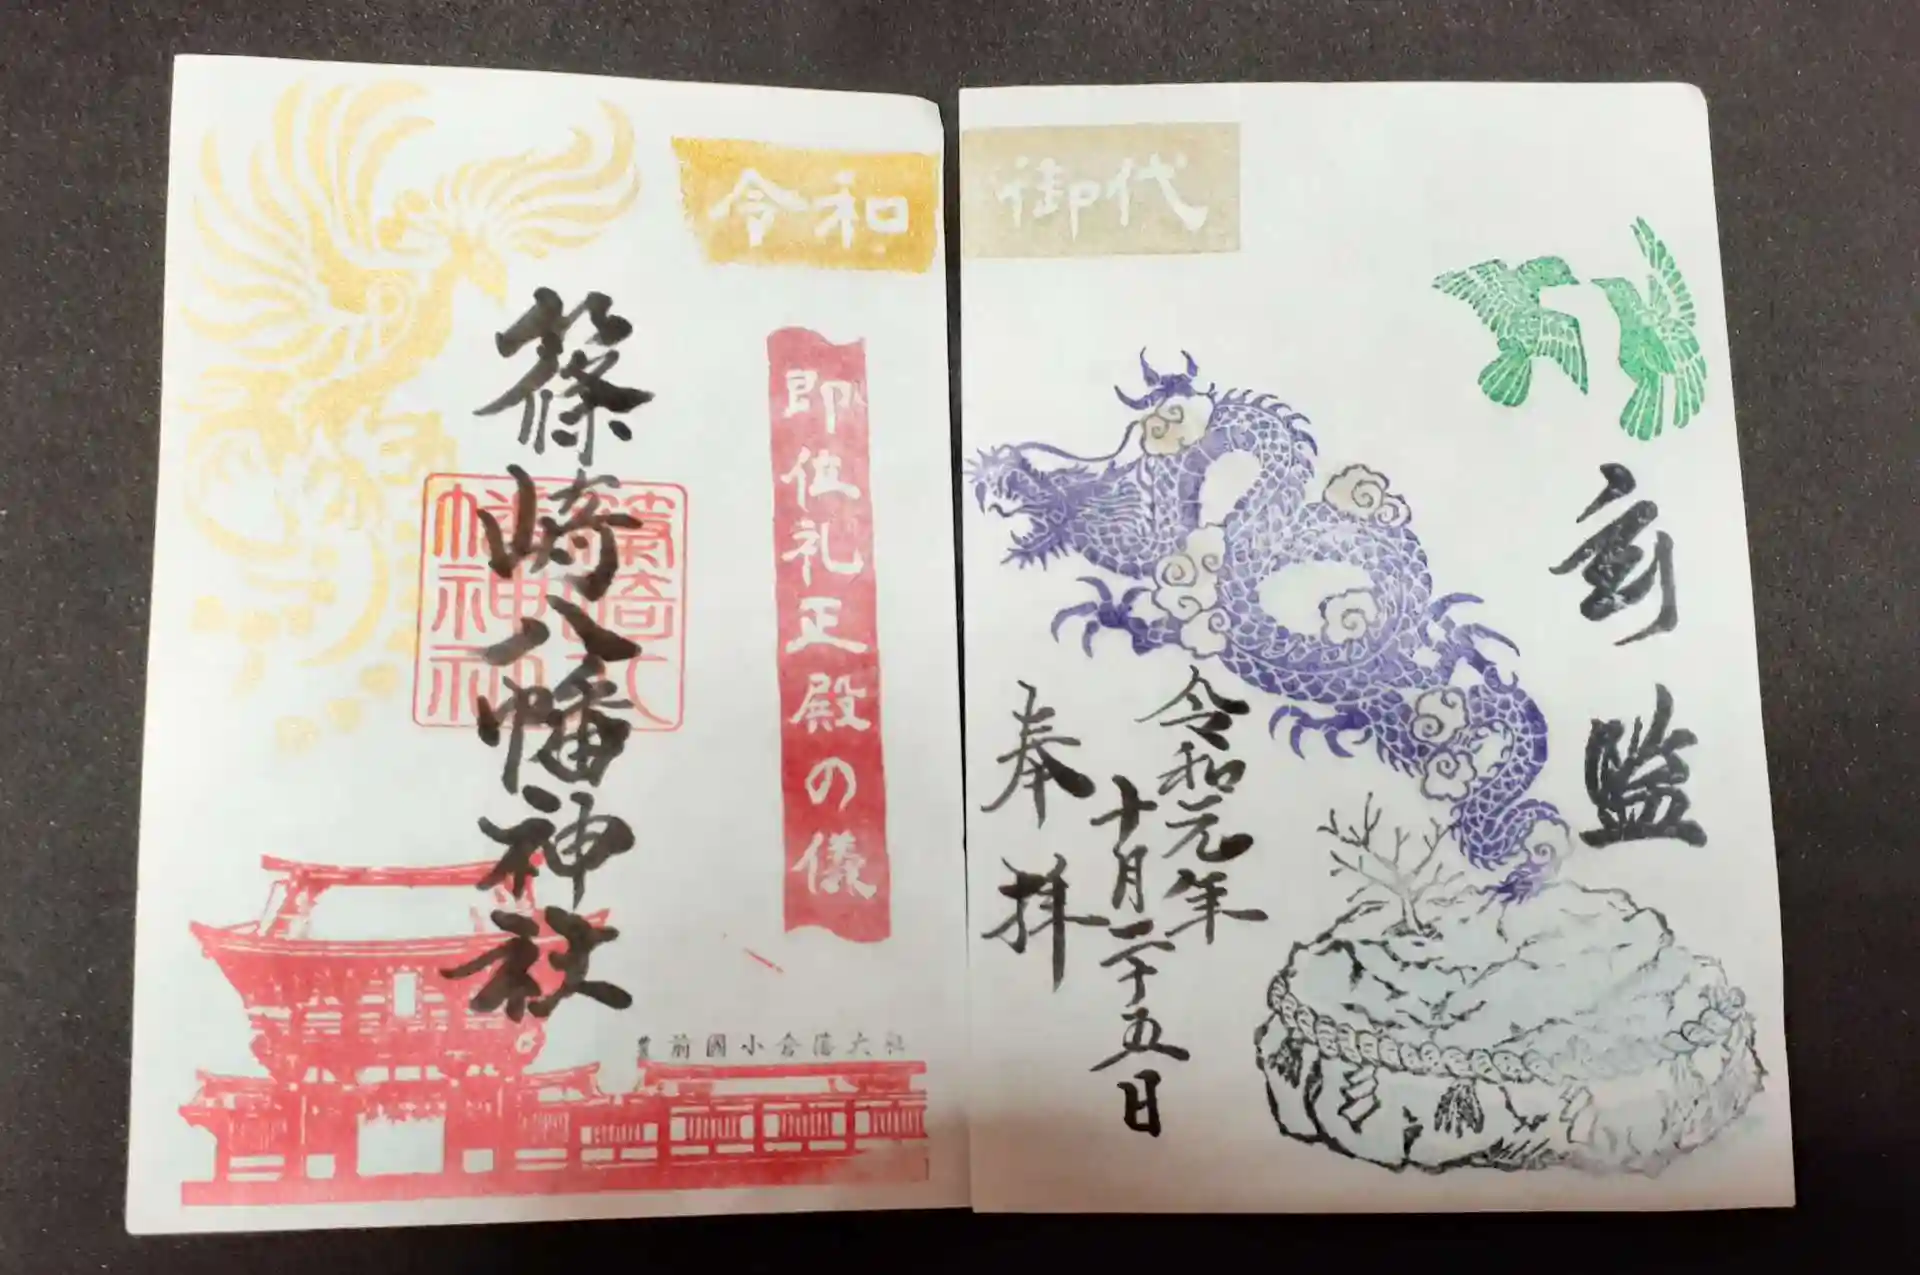 令和
御代
即位礼正殿の儀
篠崎八幡神社
篠崎八幡神社
豊前國小倉藩大社
令和元年
十月二十五日
奉拝